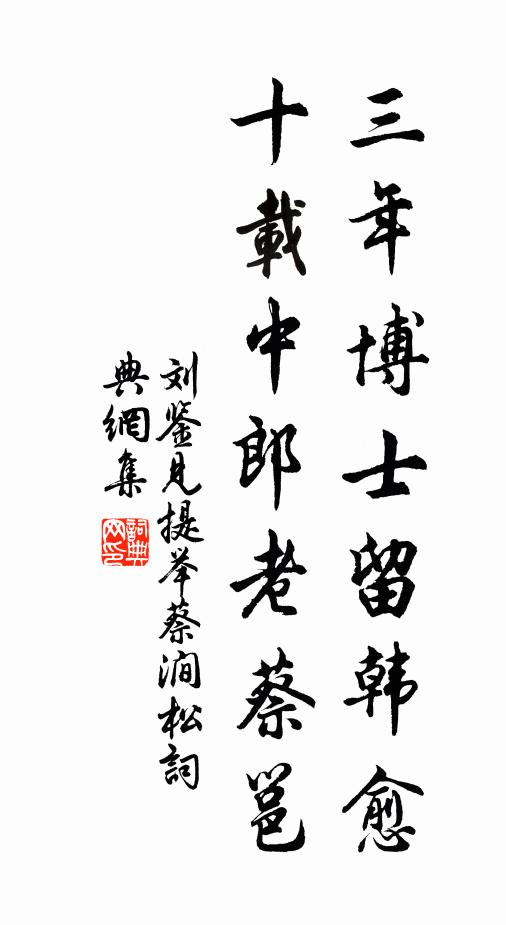 三年博士留韩愈
十載中郎老蔡邕
刘鉴见提举蔡澗松詞
典網集
詞典网印